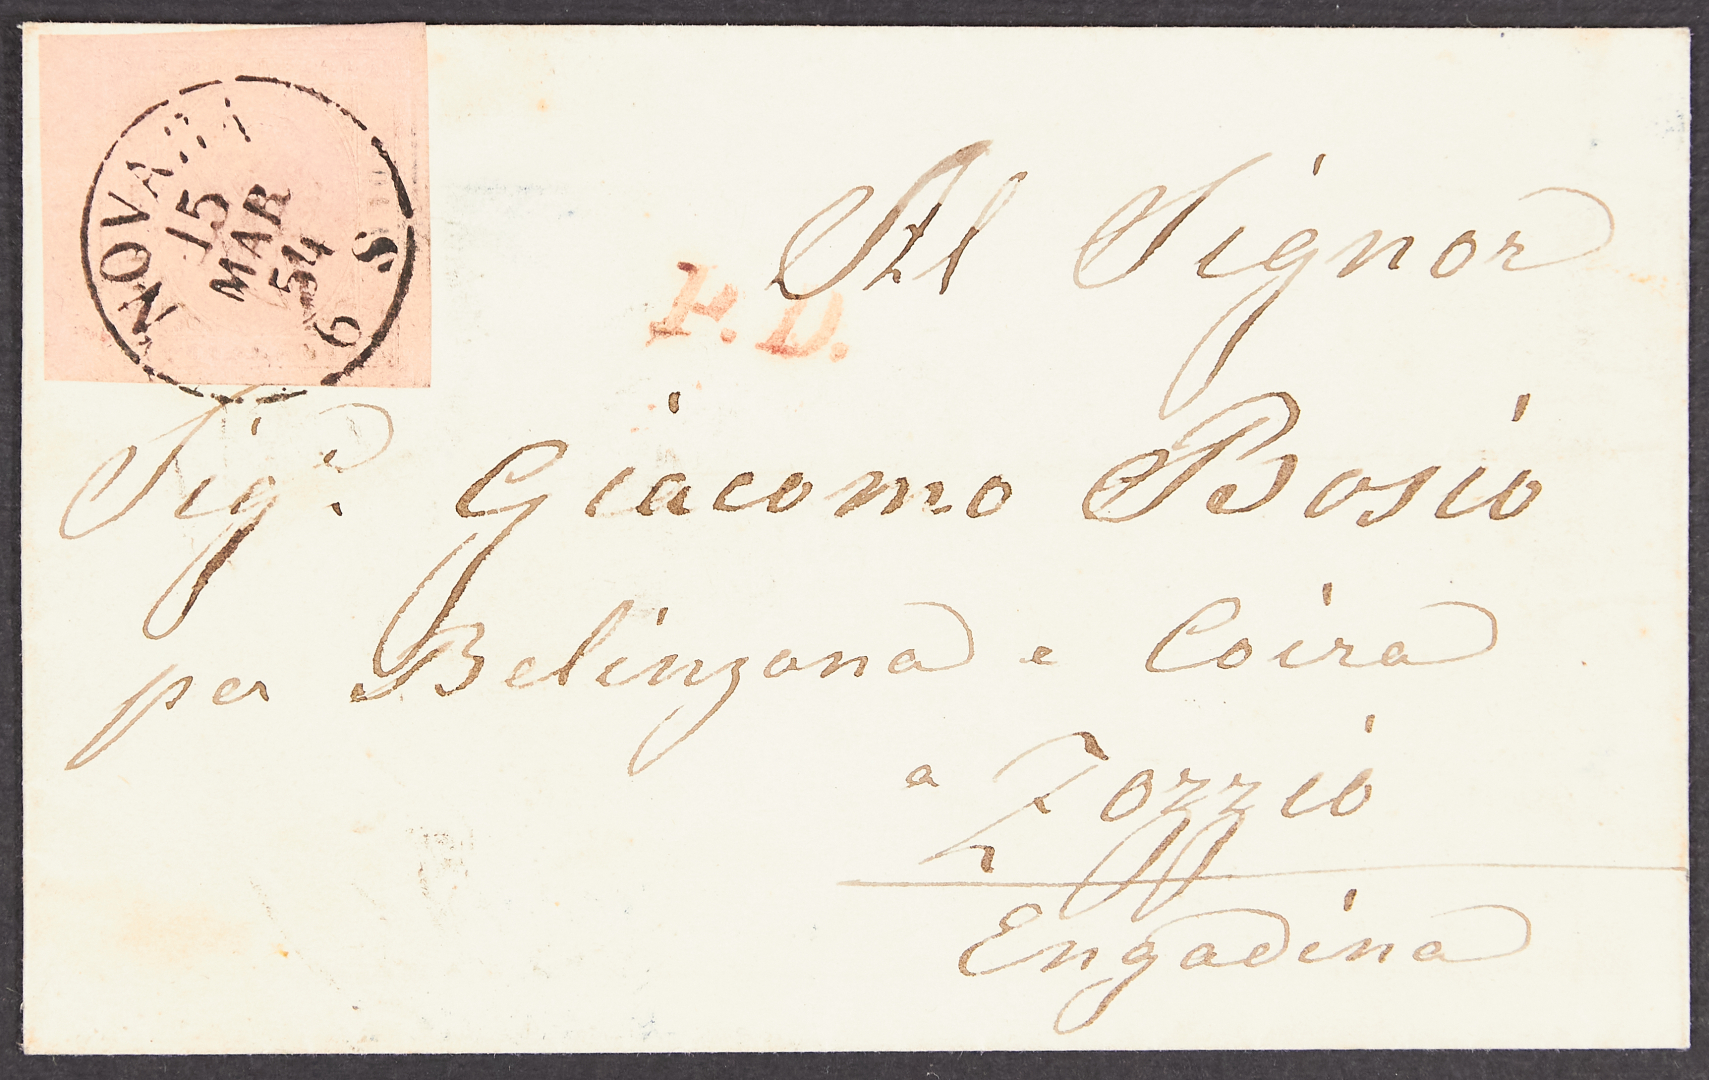 NOVARA
15
MAR
54
6 S
P.D.
Al Signor
Sig.r Giacomo Bosio
per Belinzona e Coira
a Zozzio
Engadina